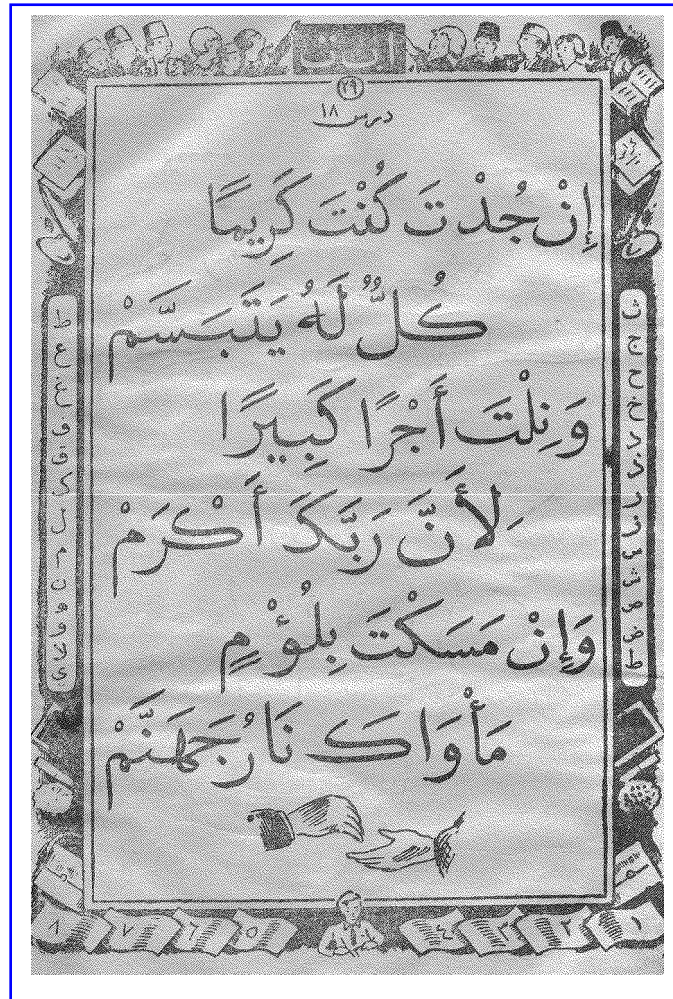 ا ب ت ث
٢٩
درس ١٨
إِنْ جُدْتَ كُنْتَ كَرِيمًا
كُلٌّ لَهُ يَتَبَسَّمْ
وَنِلْتَ أَجْرًا كَبِيرًا
لِأَنَّ رَبَّكَ أَكْرَمْ
وَإِنْ مَسَكْتَ بِلُؤْمٍ
مَأْوَاكَ نَارُ جَهَنَّمْ
ث
ج
ح
خ
د
ذ
ر
ز
س
ش
ص
ض
ط
ظ
ع
غ
ف
ق
ك
ل
م
ن
ه
و
لا
ي
١ ٢ ٣ ٤ ٥ ٦ ٧ ٨